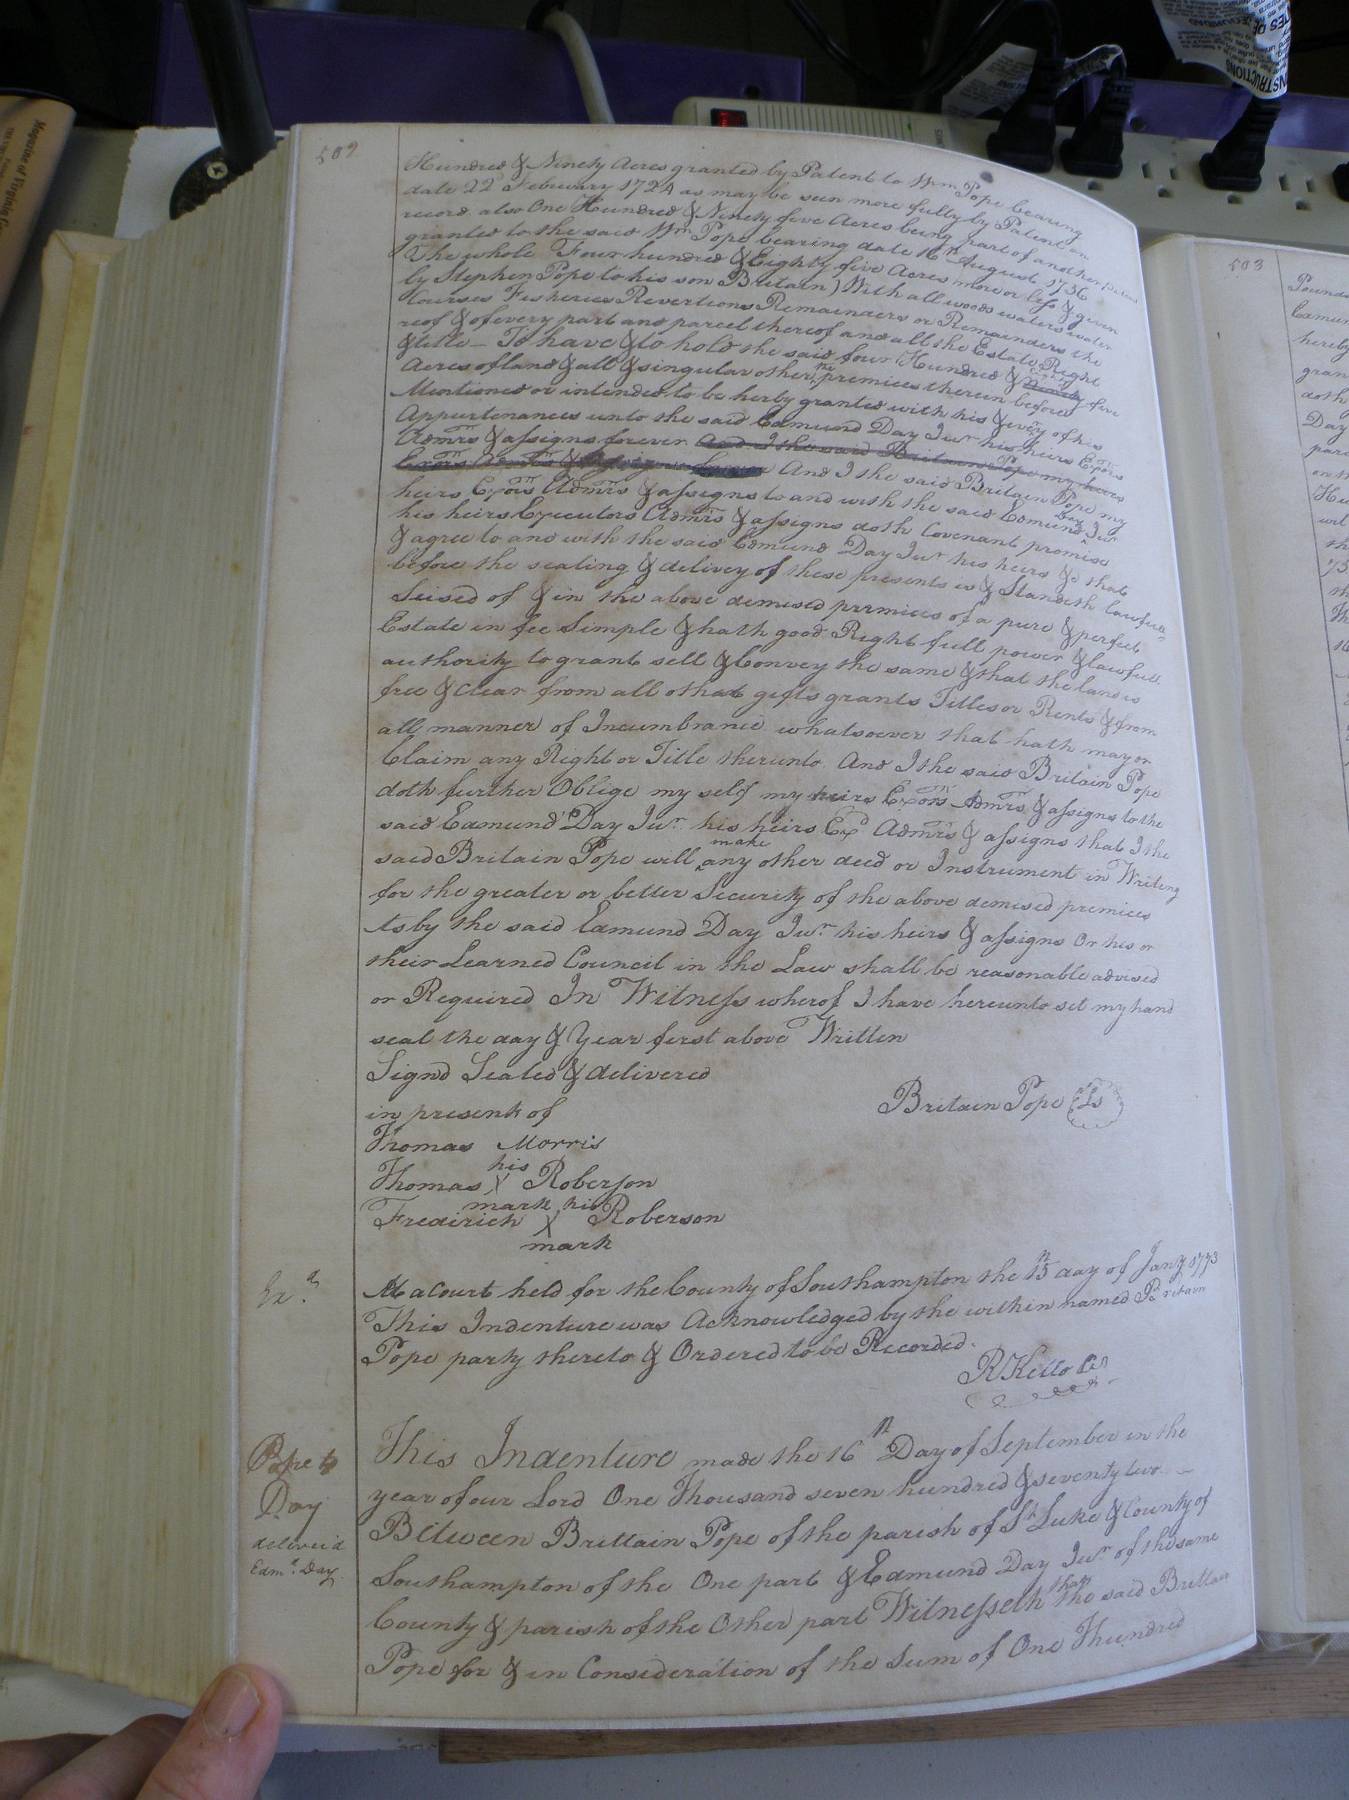 502
Hundred & Ninety Acres granted by Patent to Wm Pope bearing
date 22 February 1724 as may be seen more fully by Patent on
record also One Hundred & Ninety five Acres being part of another Patent
granted to the said Wm Pope bearing date 16th August 1736
The whole Four hundred & Eighty five Acres more or less & given
by Stephen Pope to his son Britain) With all woods waters water
Courses Fisheries Revertions Remainders or Remainders the
reof & of every part and parcel thereof and all the Estate Right
& title To have & to hold the said four Hundred & Eighty five
Acres of land & all & singular other the premices therein before
Mentioned or intended to be herby granted with his & every of his
Appurtenances unto the said Edmund Day Junr his heirs Exors
Admrs & assigns forever And I the said Britain Pope my heirs
Exors Admrs & Assigns And I the said Britain Pope my
heirs Exors Admrs & assigns to and with the said Edmund Day Junr
his heirs Executors Admrs & assigns doth Covenant promise
& agree to and with the said Edmund Day Junr his heirs & that
before the sealing & delivey of these presents is & Standeth lawfull
Seised of & in the above demised premices of a pure & perfect
Estate in fee Simple & hath good Right full power & lawfull
authority to grant sell & Convey the same & that the land is
free & Clear from all othar gifts grants Titles or Rents & from
all manner of Incumbrance whatsoever that hath may or
Claim any Right or Title therunto And I the said Britain Pope
doth further Oblige my self my heirs Exors Admrs & assigns to the
said Edmund Day Junr his heirs Exd Admrs & assigns that I the
said Britain Pope will make any other deed or Instrument in Writing
for the greater or better Security of the above demised premices
as by the said Edmund Day Junr his heirs & assigns Or his or
their Learned Council in the Law shall be reasonable advised
or Required In Witness wherof I have hereunto set my hand
seal the day & Year first above Written
Signd Sealed & delivered
in presents of
Britain Pope (Ls)
Thomas Morris
Thomas his X mark Roberson
Fredirich his X mark Roberson
Exd
At a Court held for the County of Southampton the 15th day of Jany 1773
This Indenture was Acknowledged by the within named Britain
Pope party thereto & Ordered to be Recorded.
R Kello Cr
Pope to
Day
deliver'd
Edmd Day
This Indenture made the 16th Day of September in the
year of our Lord One Thousand seven hundred & seventy two
Between Brittain Pope of the parish of St Luke & County of
Southampton of the One part & Edmund Day Junr of the same
County & parish of the Other part Witnesseth that the said Brittain
Pope for & in Consideration of the Sum of One Hundred
503
Pounds
Edmun
hereby
gran
doth
Day
par
on
Hu
Magazine of Virginia